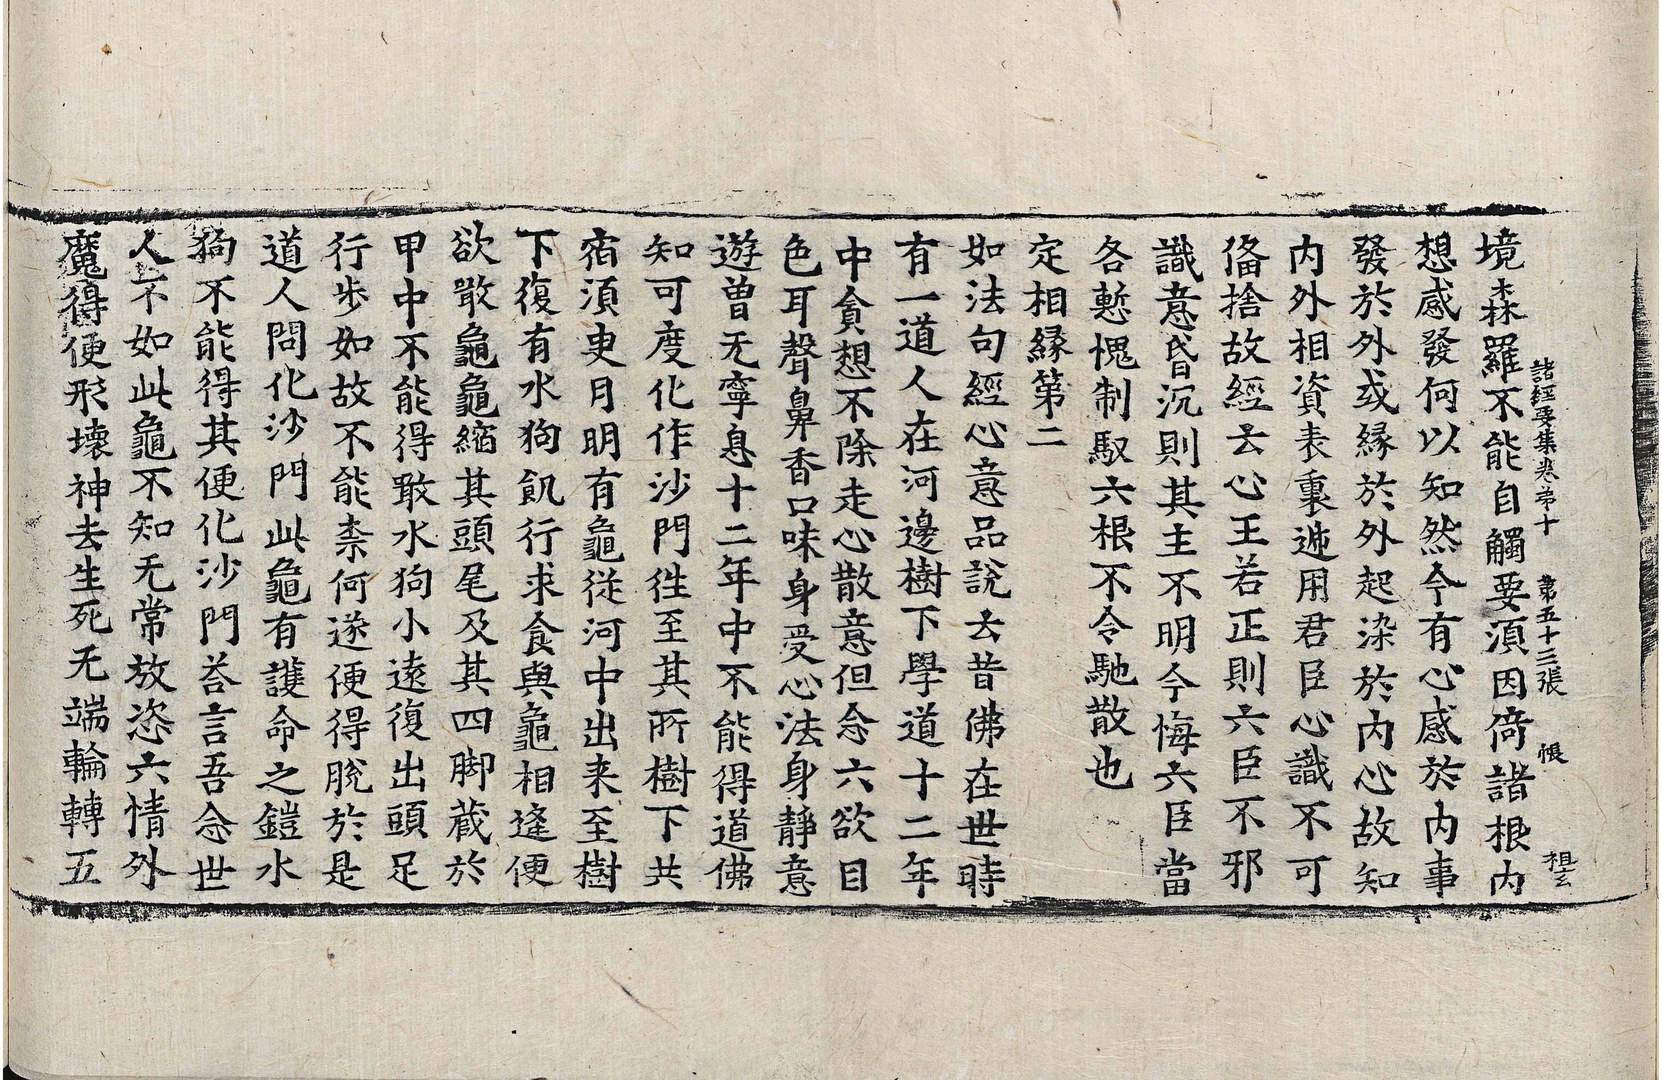 諸經要集卷第十　第五十三張　悵　祖玄
境森羅不能自觸要須因倚諸根內
想感發何以知然今有心感於內事
發於外或緣於外起染於內心故知
內外相資表裏遞用君臣心識不可
偹捨故經云心王若正則六臣不邪
識意昏沉則其主不明今悔六臣當
各慙愧制馭六根不令馳散也
定相緣第二
如法句經心意品說云昔佛在世時
有一道人在河邊樹下學道十二年
中貪想不除走心散意但念六欲目
色耳聲鼻香口味身受心法身靜意
遊曾无寧息十二年中不能得道佛
知可度化作沙門徃至其所樹下共
宿須臾月明有龜從河中出来至樹
下復有水狗飢行求食與龜相逢便
欲噉龜龜縮其頭尾及其四脚藏於
甲中不能得噉水狗小遠復出頭足
行步如故不能柰何遂便得脫於是
道人問化沙門此龜有護命之鎧水
狗不能得其便化沙門荅言吾念世
人不如此龜不知无常放恣六情外
魔得便形壞神去生死无端輪轉五